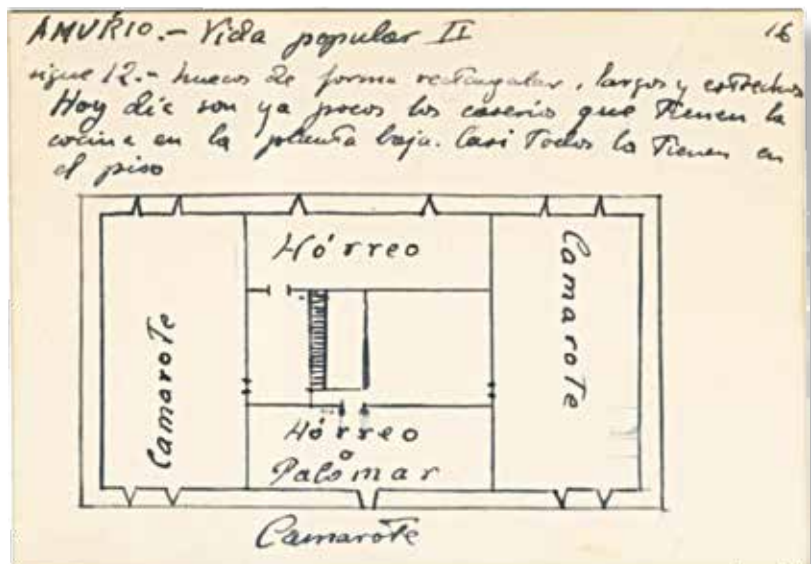 AMURIO.- Vida popular II 16
sigue 12.- huecos de forma rectangular, largos y estrechos
Hoy día son ya pocos los caserio que tienen la
cocina en la planta baja. Casi todos la tienen en
el piso
Hórreo
Camarote
Camarote
Hórreo
o
Palomar
Camarote